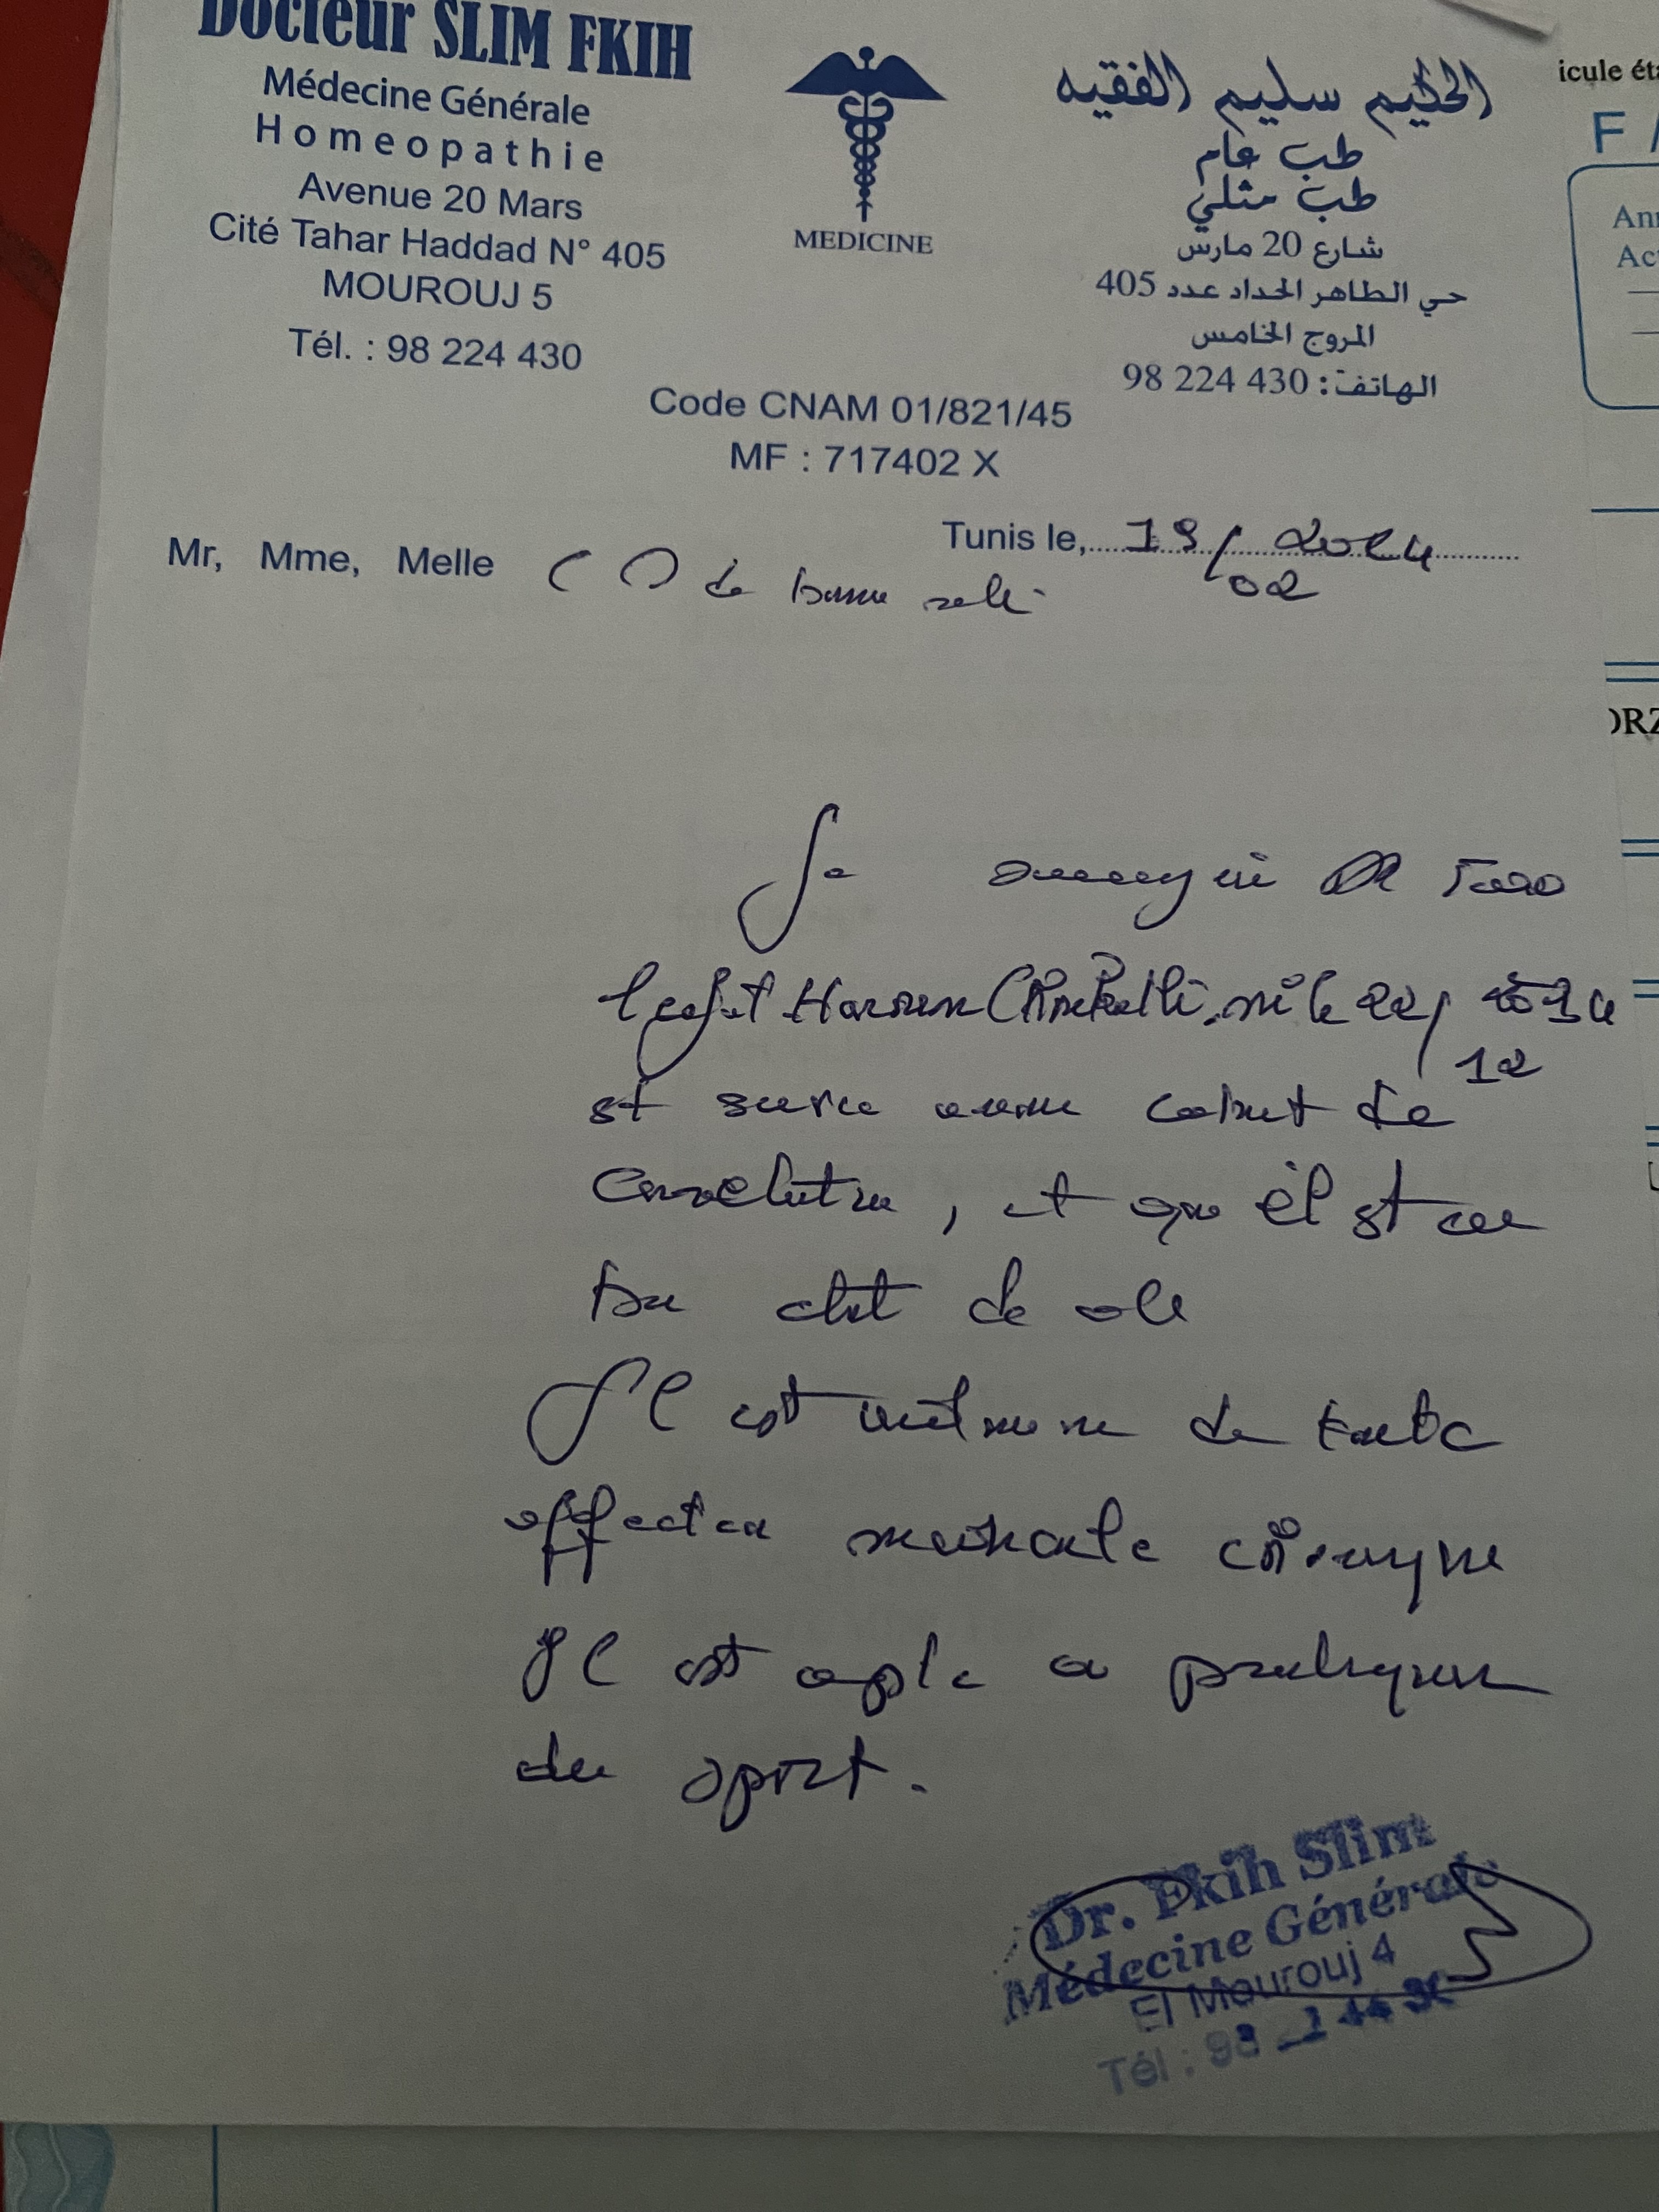 Docteur SLIM FKIH
Médecine Générale
Homeopathie
Avenue 20 Mars
Cité Tahar Haddad N° 405
MOUROUJ 5
Tél. : 98 224 430
MEDICINE
الحكيم سليم الفقيه
طب عام
طب مثلي
شارع 20 مارس
حي الطاهر الحداد عدد 405
المروج الخامس
الهاتف: 98 224 430
Code CNAM 01/821/45
MF : 717402 X
icule éta
F
Ann
Ac
ORZ
Tunis le, 19/02 2024
Mr, Mme, Melle C () de bonne
Je
Haroun né le 22/12
est suivi cabinet de
consultation, et que il est en
bon etat de
Il est de toute
affection médicale chronique
Il est apte a pratiquer
du sport.
Dr. Fkih Slim
Médecine Générale
El Mourouj 4
Tél : 98